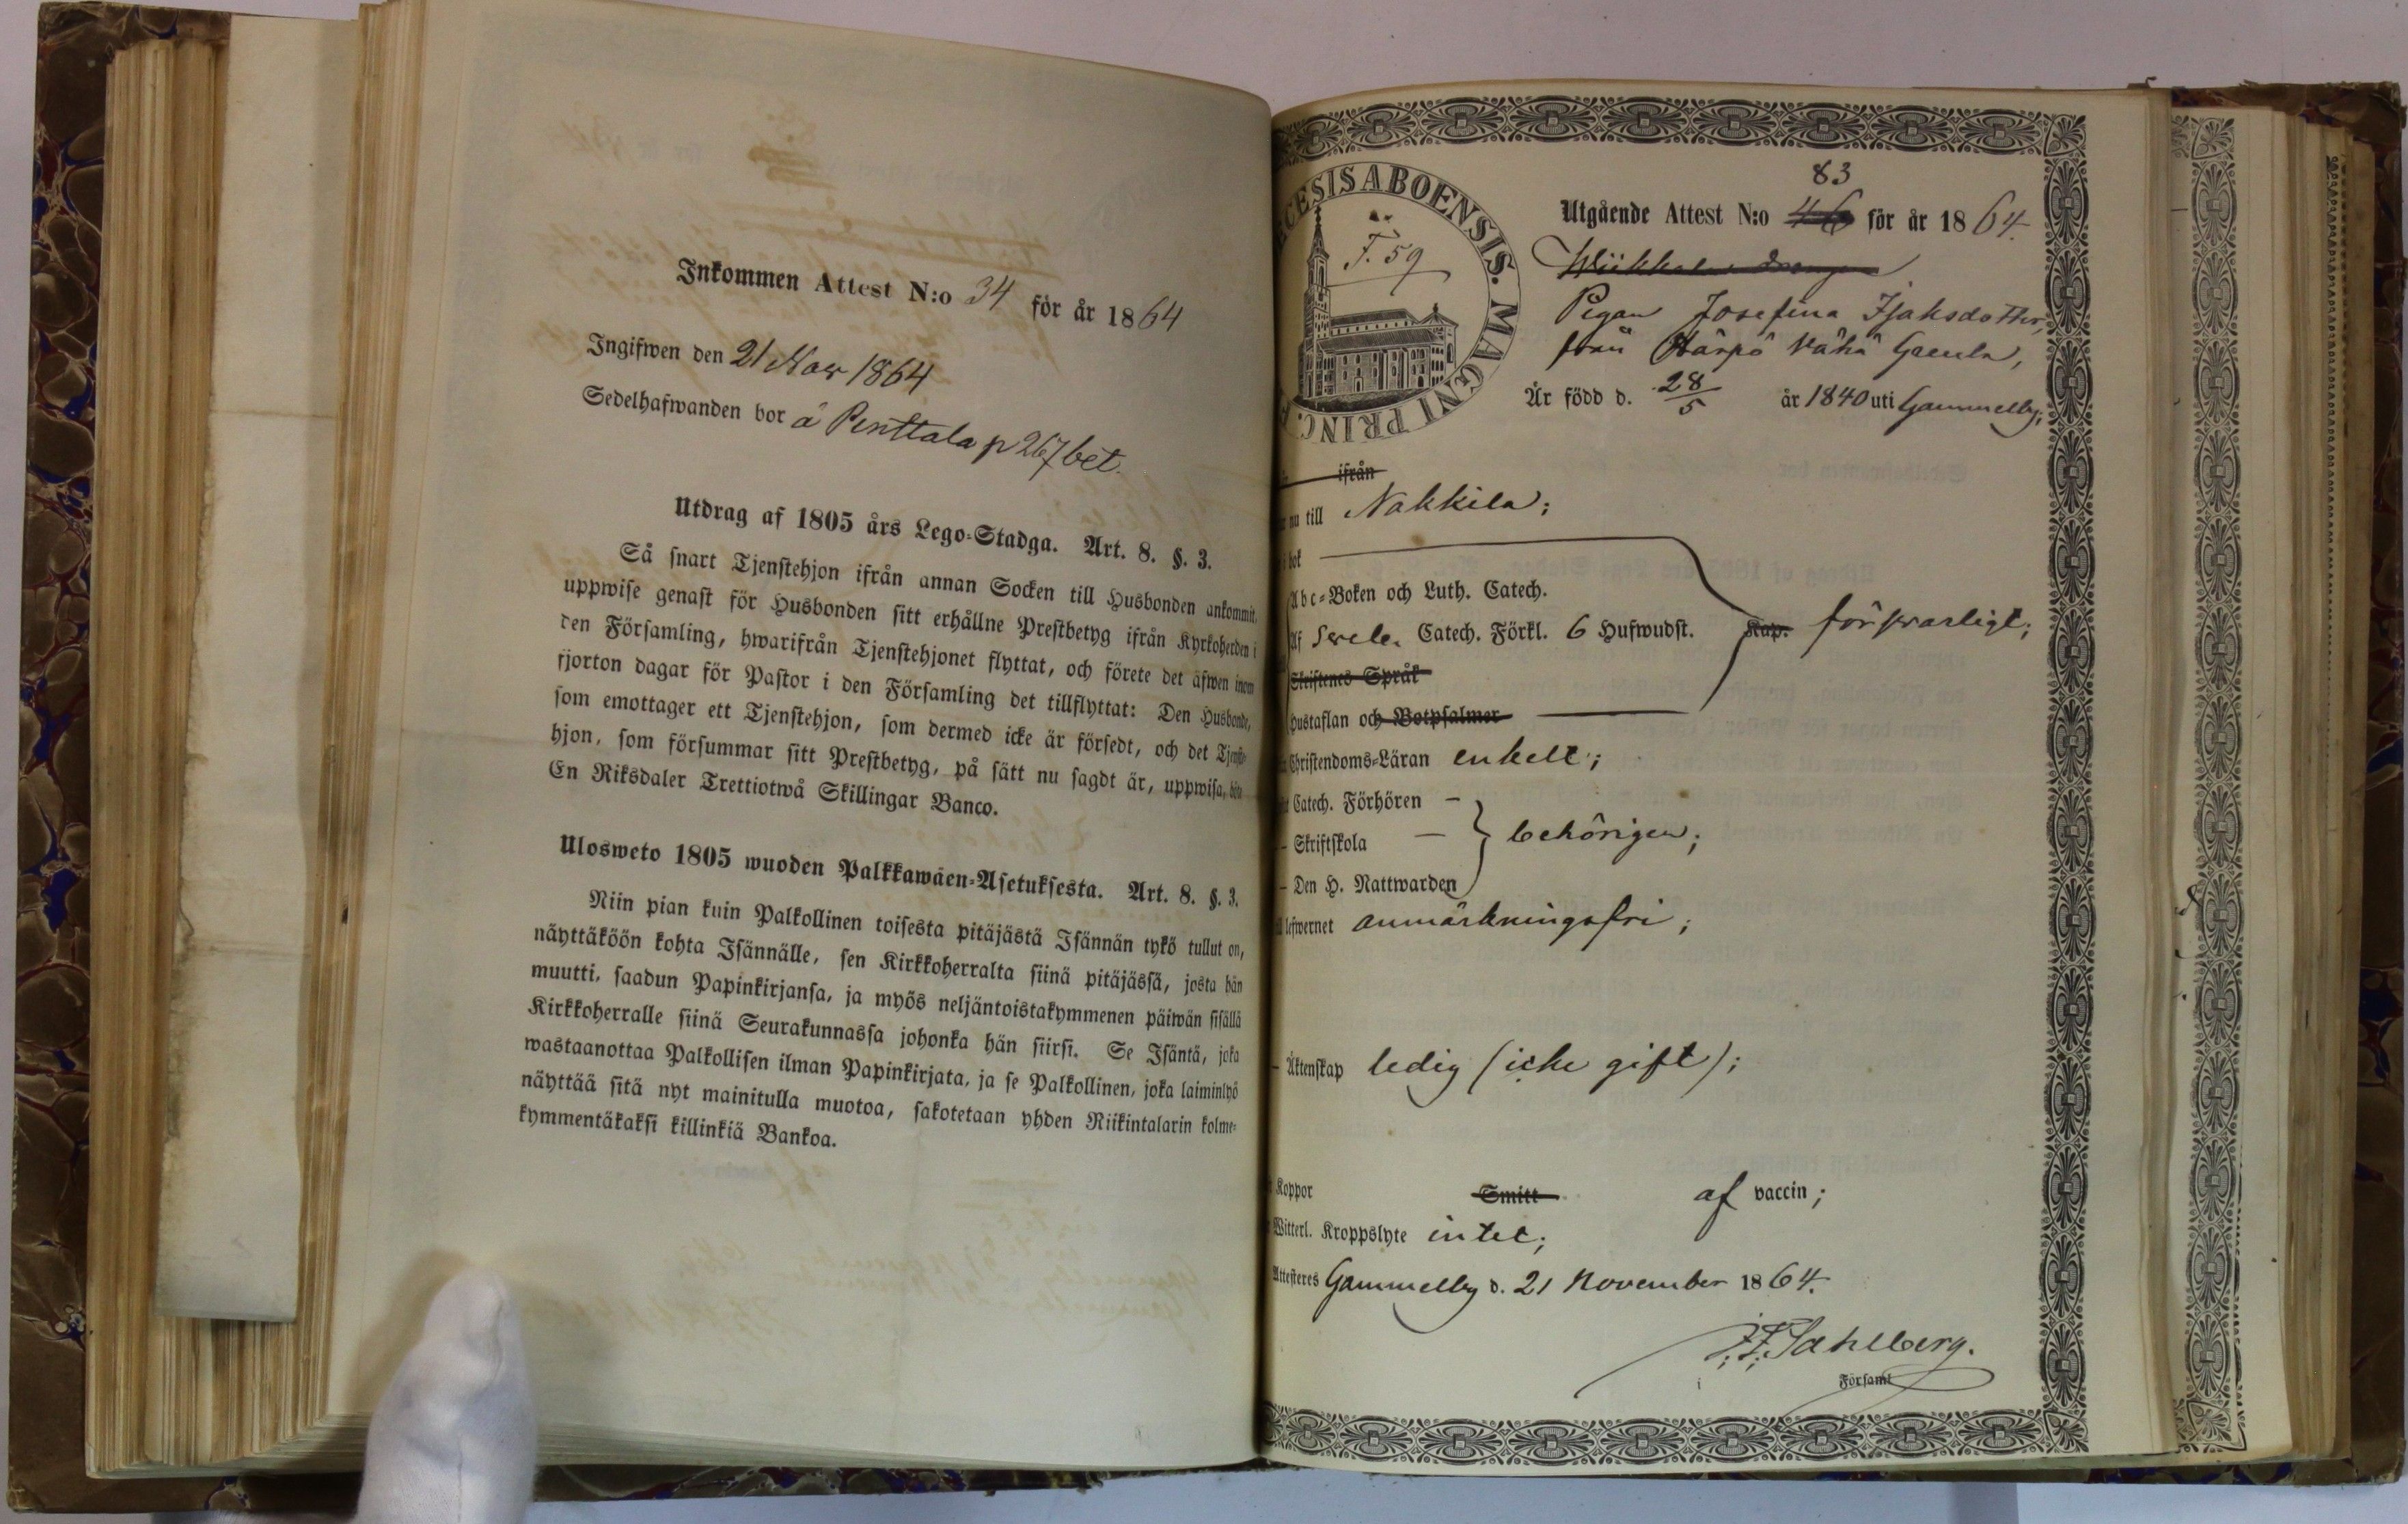 Inkommen Attest N:o 34 för år 1864
Ingifwen den 21 Nov 1864
Sedelhafwanden bor å Penttala p 267 bet.
Utdrag af 1805 års Lego-Stadga. Art. 8. §. 3.
Så snart Tjenstehjon ifrån annan Socken till Husbonden ankommit,
uppwise genast för Husbonden sitt erhållne Prestbetyg ifrån Kyrkoherden i
den Församling, hwarifrån Tjenstehjonet flyttat, och förete det äfwen inom
fjorton dagar för Pastor i den Församling det tillflyttat: Den Husbonde,
som emottager ett Tjenstehjon, som dermed icke är försedt, och det Tjenste-
hjon, som försummar sitt Prestbetyg, på sätt nu sagdt är, uppwisa, böte
En Riksdaler Trettiotwå Skillingar Banco.
Ulosweto 1805 wuoden Palkkawäen-Asetuksesta. Art. 8. §. 3.
Niin pian kuin Palkollinen toisesta pitäjästä Isännän tykö tullut on,
näyttäköön kohta Isännälle, sen Kirkkoherralta siinä pitäjässä, josta hän
muutti, saadun Papinkirjansa, ja myös neljäntoistakymmenen päiwän sisällä
Kirkkoherralle siinä Seurakunnassa johonka hän siirsi. Se Isäntä, joka
wastaanottaa Palkollisen ilman Papinkirjata, ja se Palkollinen, joka laiminlyö
näyttää sitä nyt mainitulla muotoa, sakotetaan yhden Riikintalarin kolme-
kymmentäkaksi killinkiä Bankoa.
ECESIS ABOENSIS. MAGNI PRINC.
F. 59
83
Utgående Attest N:o 46 för år 1864.
Pigan Josefina Isaksdotter,
från Härpö Vähä Gamla,
Är född d. 28/5 år 1840 uti Gammelby;
ifrån
nu till Nakkila;
bok
Abc-Boken och Luth. Catech.
Af Sveb. Catech. Förkl. 6 Hufwudst. Kap. försvarligt;
Skriftenes Språk
Hustaflan och Botpsalmer
Christendoms-Läran enkelt;
Catech. Förhören –
– Skriftskola – behörigen;
– Den H. Nattwarden
lefwernet anmärkningsfri;
– Äktenskap ledig (icke gift);
Koppor Smitt af vaccin;
Witterl. Kroppslyte intet;
Attesteres Gammelby d. 21 November 1864.
F. F. Sahlberg.
i Församl